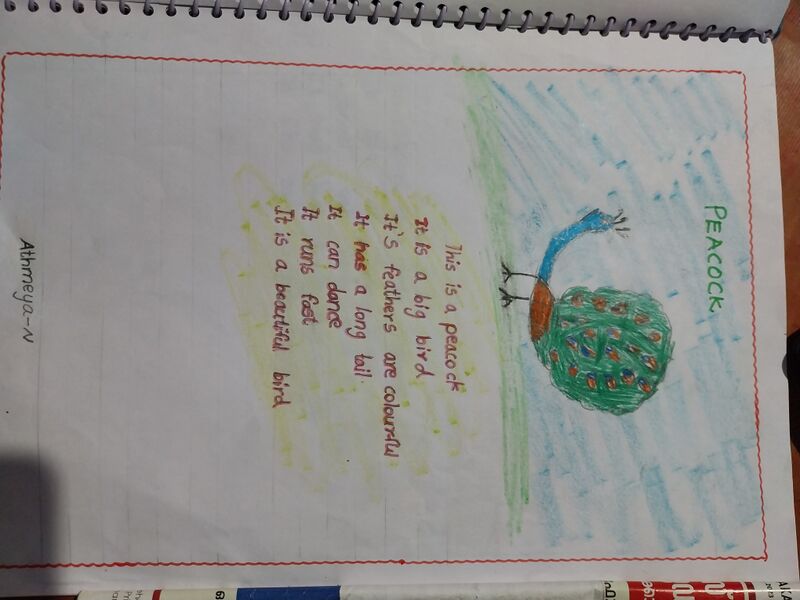 PEACOCK
This is a peacock
It is a big bird
It's feathers are colourful
It has a long tail.
It can dance
It runs fast
It is a beautiful bird
Athmeya-N